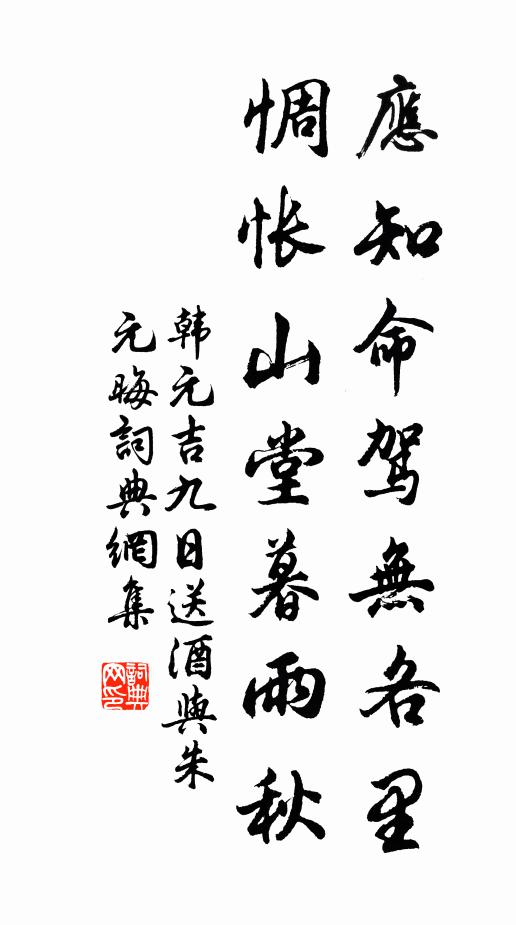 應知命駕無各里
惆悵山堂暮雨秋
韩元吉九日送酒與朱
元晦詞典網集
詞典網印